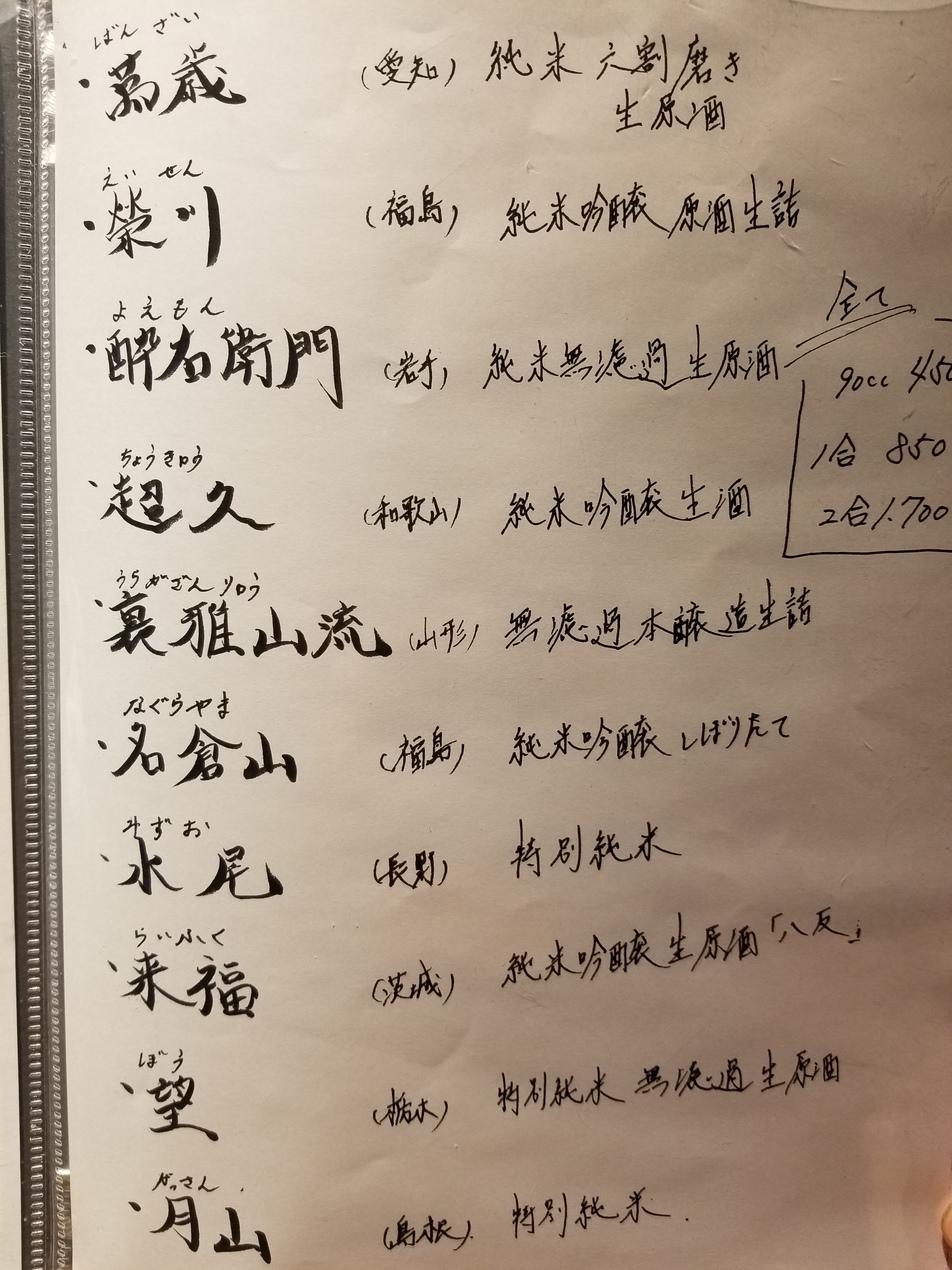 ばんざい
・萬歳 (愛知) 純米 六割磨き
生原酒
えいせん
・榮川 (福島) 純米吟醸 原酒生詰
全て
よえもん
・酔右衛門 (岩手) 純米無濾過生原酒
90cc 450
1合 850
2合 1.700
ちょうきゅう
・超久 (和歌山) 純米吟醸生酒
うらがざんりゅう
・裏雅山流 (山形) 無濾過本醸造生詰
なぐらやま
・名倉山 (福島) 純米吟醸 しぼりたて
みずお
・水尾 (長野) 特別純米
らいふく
・来福 (茨城) 純米吟醸生原酒「八反」
ぼう
・望 (栃木) 特別純米 無濾過生原酒
がっさん
・月山 (島根) 特別純米